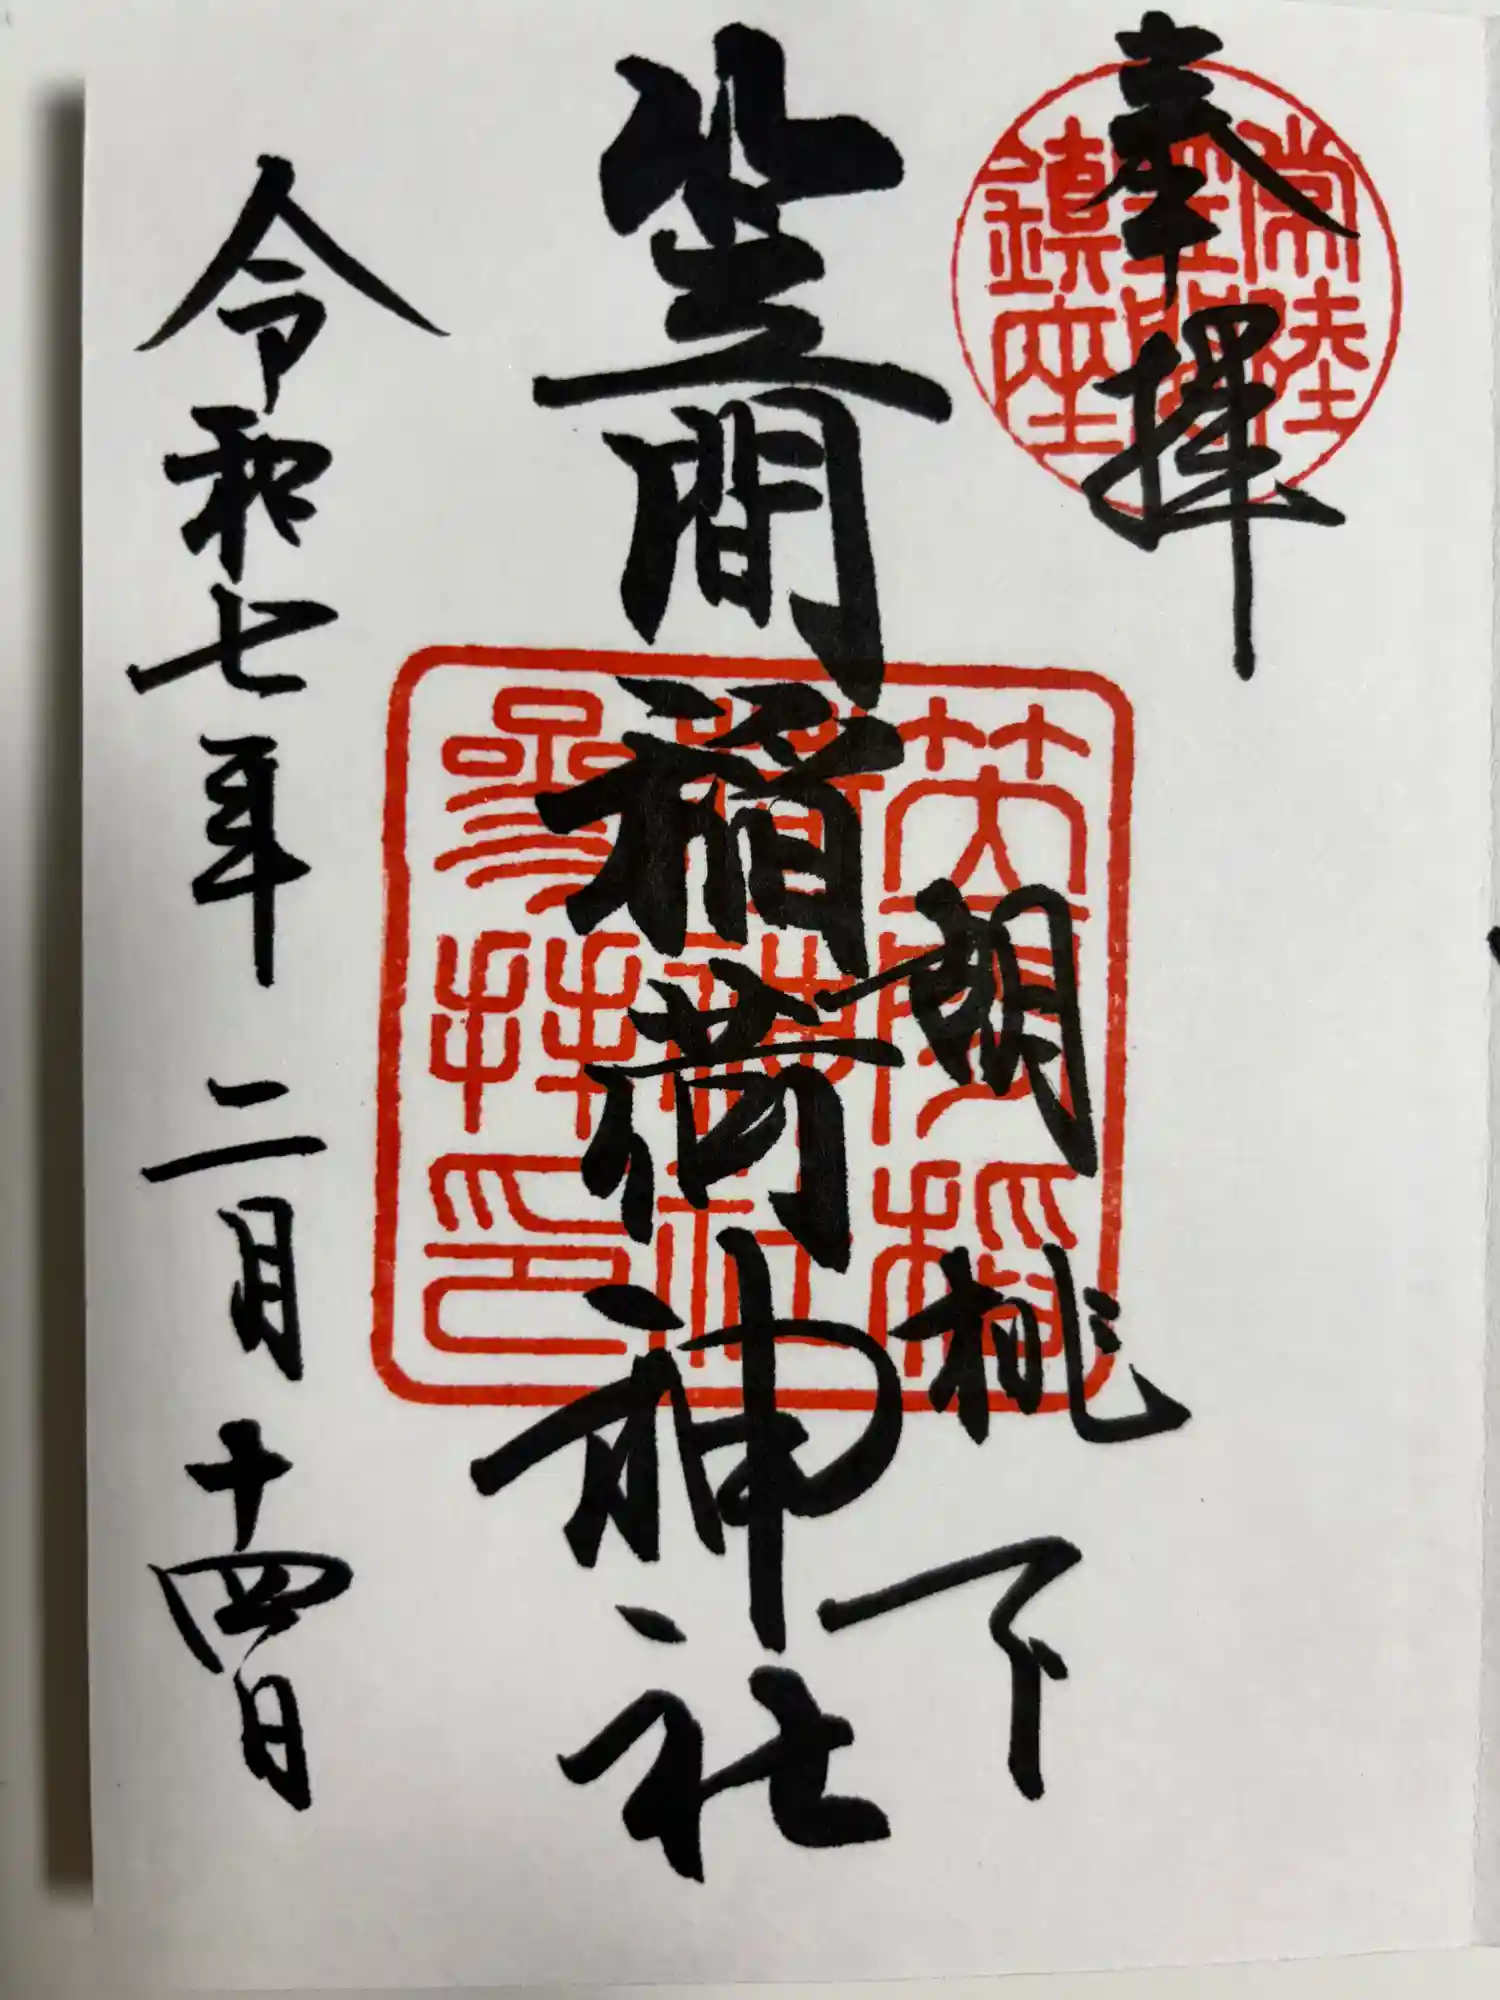 奉拝
常陸
笠間
鎮座
胡桃下
笠間稲荷神社
笠間稲
荷神社
參拜印
令和七年二月十四日